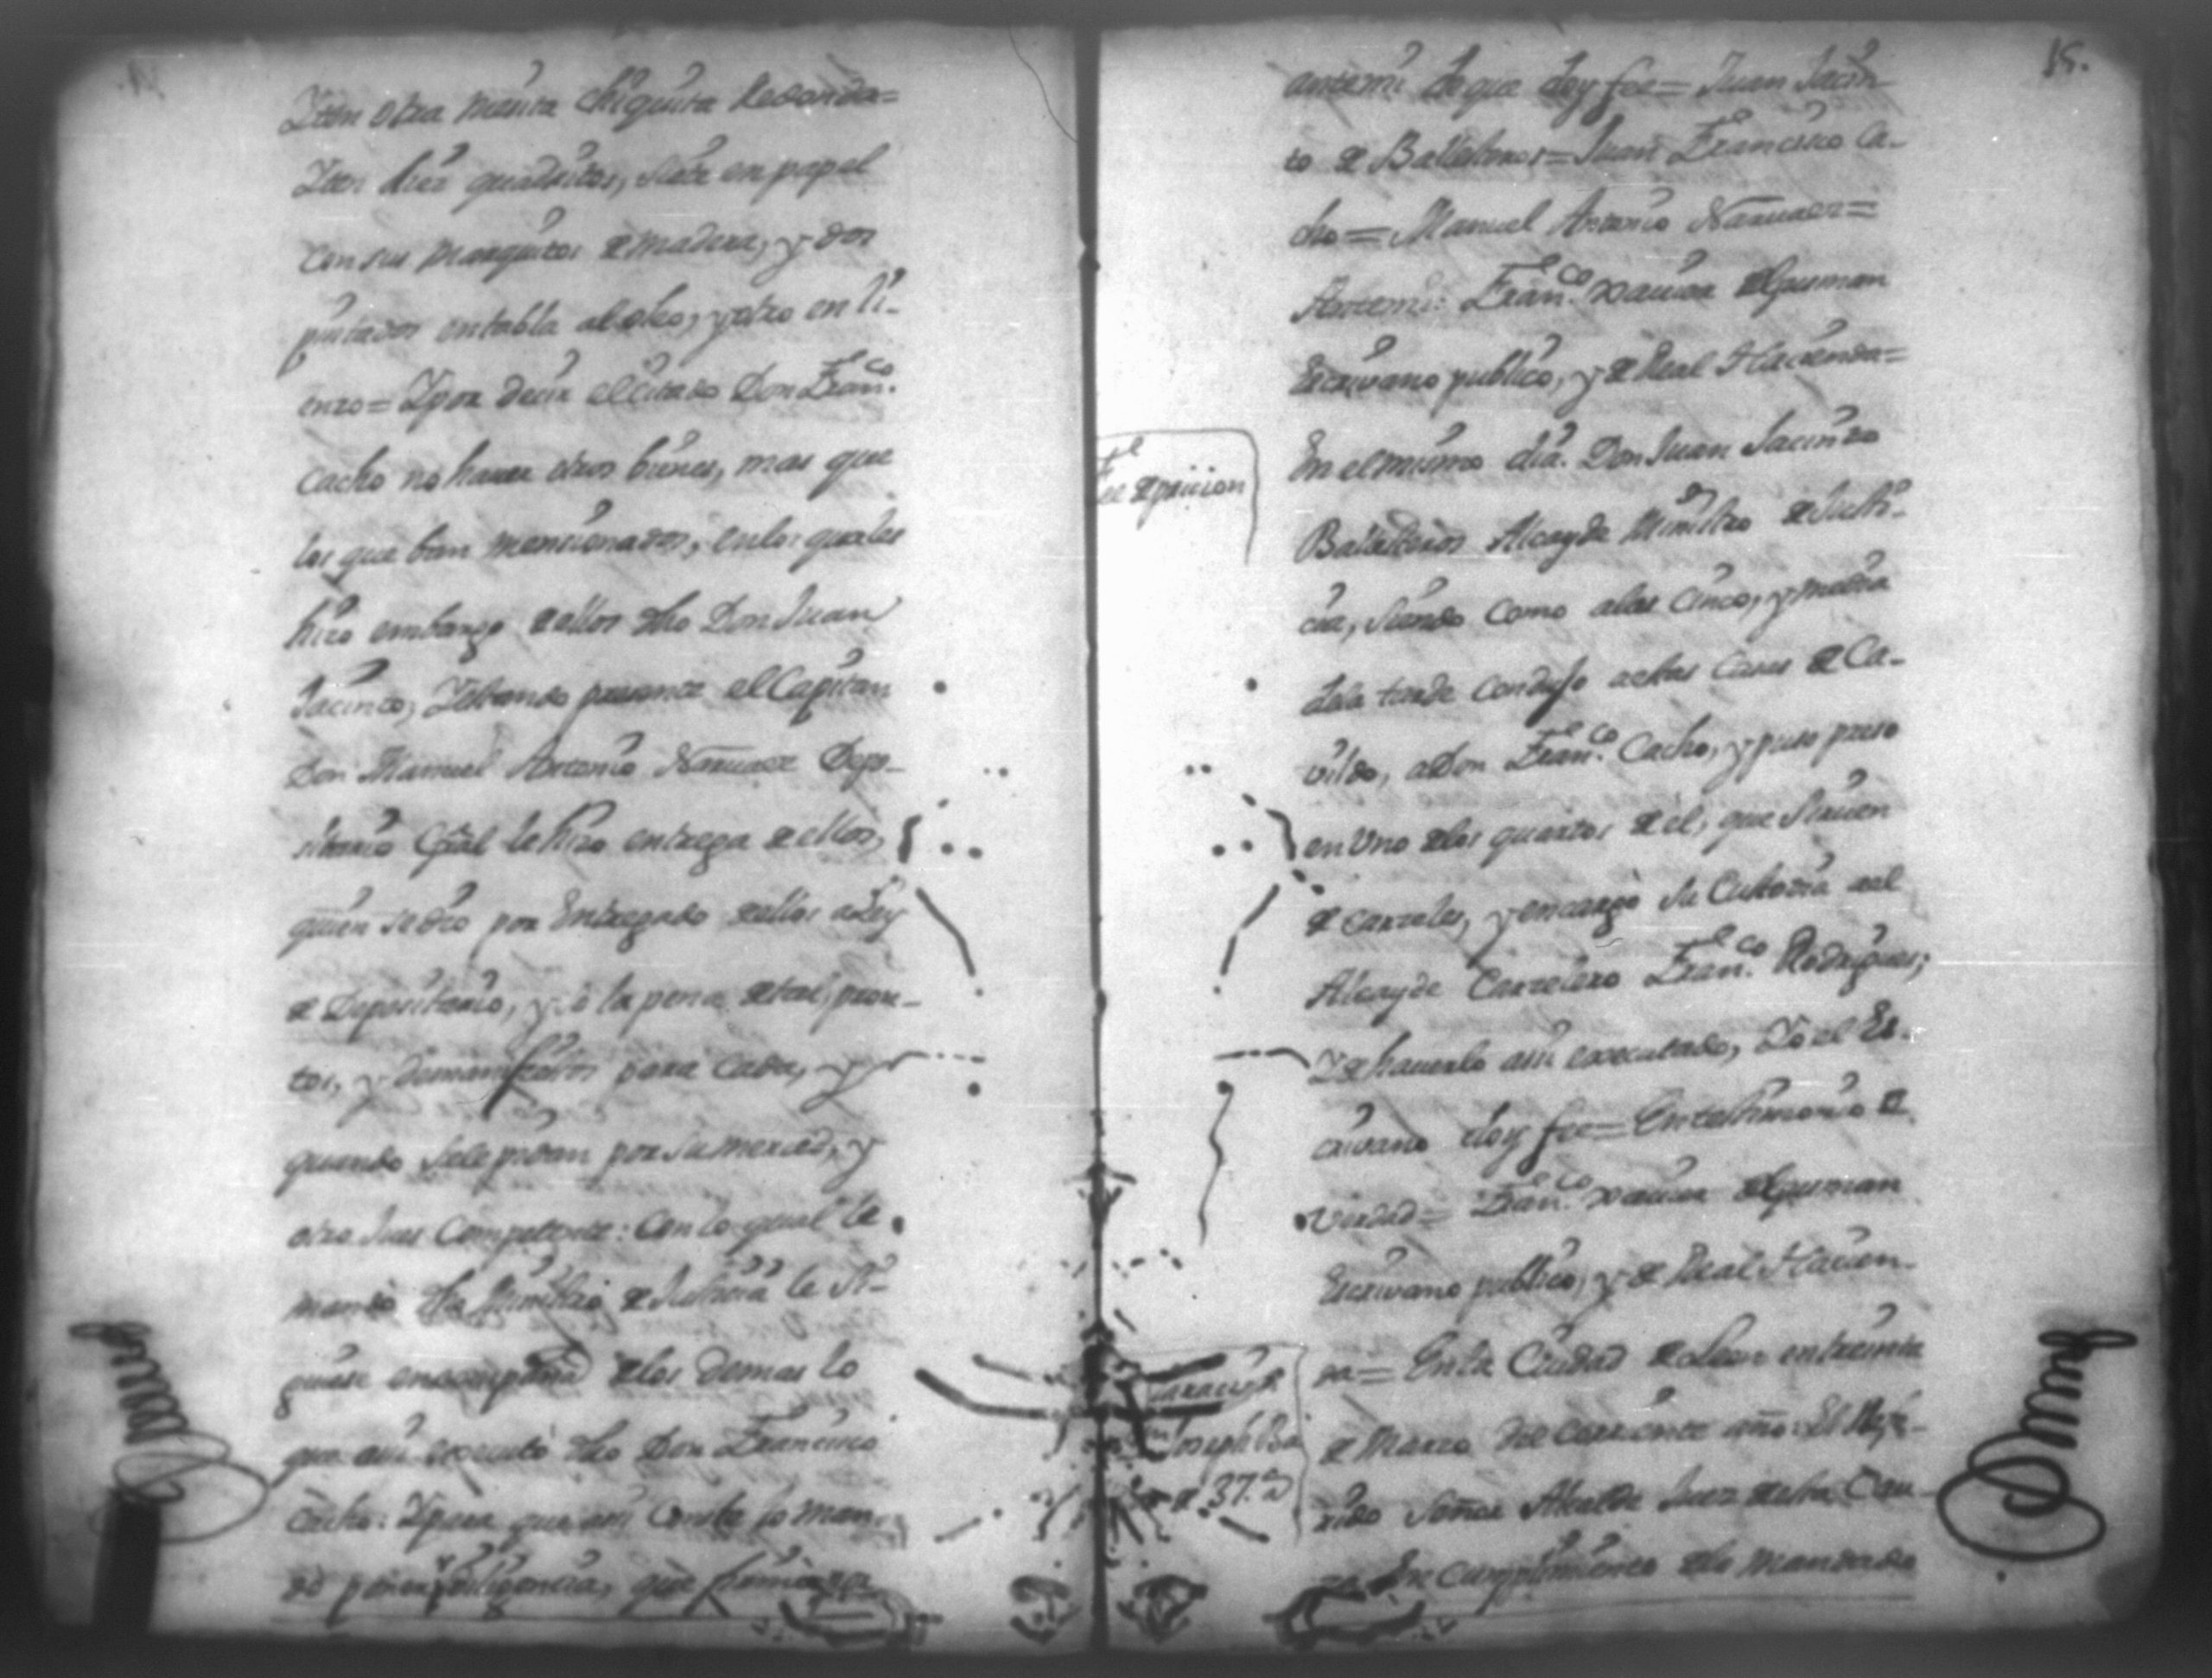 Iten otra mauta chiquita Redonda=
Iten diez quadritos, siete en papel
con sus marquitos de madera, y dos
pintados en tabla al oleo, y otro en li-
enzo= Y por decir el citado Don Franco.
Cacho no haver otros bienes, mas que
los que ban mensionados, en los quales
hizo embargo de ellos dho Don Juan
Jacinto, Y estando presente el Capitan
Don Manuel Antonio Narvaez Depo-
sitario Gral le hizo entrega de ellos,
quien se dio por entregado de ellos a Ley
de Depositario, y so la pena de tal, pron-
tos, y demanifestos para cada, y
quando se le pidan por su merced, y
otro Juez Competente: Con lo qual le
mando dho Ministro de Justicia le si-
guiese en compañia de los demas lo
que assi executó dho Don Francisco
Cacho: Y para que assi conste lo man-
dó poner por diligencia, que firmó
15.
antemi de que doy fee= Juan Jacin-
to de Ballesteros= Juan Francisco Ca-
cho= Manuel Antonio Narvaez=
Antemi: Franco. Xavier de Gusman
Escrivano publico, y de Real Hacienda=
Fee de pricion
En el mismo dia. Don Juan Jacinto
Ballesteros Alcayde Ministro de Justi-
cia, siendo como alas cinco, y media
dela tarde condujo a estas Casas de Ca-
vildo, a Don Franco. Cacho, y puso preso
en Uno delos quartos de el, que sirven
de carzeles, y encargó su Custodia a el
Alcayde Carzelero Franco. Rodrigues;
Y de haverlo assi executado, Yo el Es-
crivano doy fee= En testimonio de
Verdad= Franco. Xavier de Gusman
Escrivano publico, y de Real Hacien-
da= En la Ciudad de Leon en treinta
de Marzo del corriente año: El Refe-
rido Señor Alcalde Juez de esta Cau-
sa En cumplimiento de lo mandado
Joseph
de 37. a